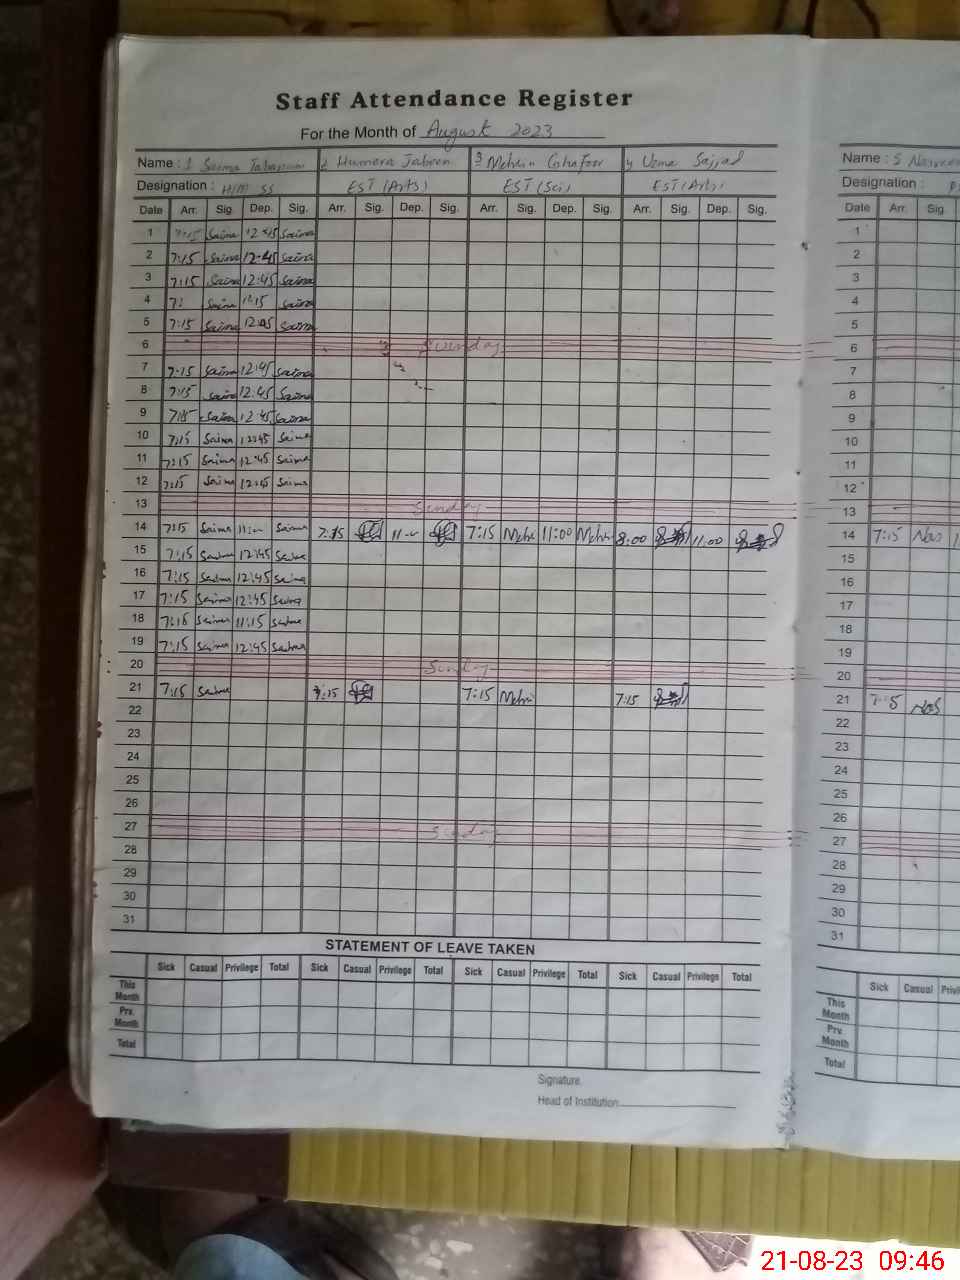 Staff Attendance Register
For the Month of August 2023
Name : 1 Saima Tabassum 2 Humera Jabeen 3 Mehrin Ghafoor 4 Uzma Sajjad Name : 5
Designation : H/M SS EST (Arts) EST (Sci) EST (Arts) Designation :
Date Arr. Sig. Dep. Sig. Arr. Sig. Dep. Sig. Arr. Sig. Dep. Sig. Arr. Sig. Dep. Sig. Date Arr. Sig.
1 7:15 Saima 12:45 Saima 1
2 7:15 Saima 12:45 Saima 2
3 7:15 Saima 12:45 Saima 3
4 Saima 11:15 Saima 4
5 7:15 Saima 12:45 Saima 5
6 Sunday 6
7 7:15 Saima 12:45 Saima 7
8 7:15 Saima 12:45 Saima 8
9 7:15 Saima 12:45 Saima 9
10 7:15 Saima 12:45 Saima 10
11 7:15 Saima 12:45 Saima 11
12 7:15 Saima 12:45 Saima 12
13 Sunday 13
14 7:15 Saima 11:- Saima 7:15 11:- 7:15 Mehri 11:00 Mehri 8:00 11:00 14 7:15 Nas
15 7:15 Saima 12:45 Saima 15
16 7:15 Saima 12:45 Saima 16
17 7:15 Saima 12:45 Saima 17
18 7:15 Saima 11:15 Saima 18
19 7:15 Saima 12:45 Saima 19
20 Sunday 20
21 7:15 Saima 7:15 7:15 Mehri 7:15 21 7:15 Nas
22 22
23 23
24 24
25 25
26 26
27 Sunday 27
28 28
29 29
30 30
31 31
STATEMENT OF LEAVE TAKEN
Sick Casual Privilege Total Sick Casual Privilege Total Sick Casual Privilege Total Sick Casual Privilege Total Sick Casual
This Month This Month
Prv. Month Prv. Month
Total Total
Signature
Head of Institution
21-08-23 09:46